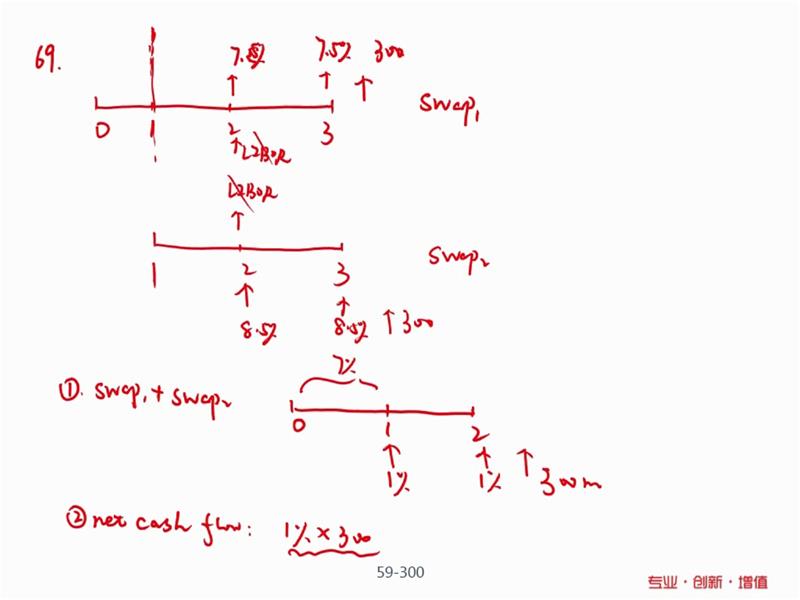 69.
7.5%
7.5% 300
swap₁
0 1 2 3
LIBOR
LIBOR
swap₂
1 2 3
8.5%
8.5% 300
7%
① swap₁ + swap₂
0 1 2
1%
1% 300m
② net cash flow: 1% × 300
59-300
专业·创新·增值